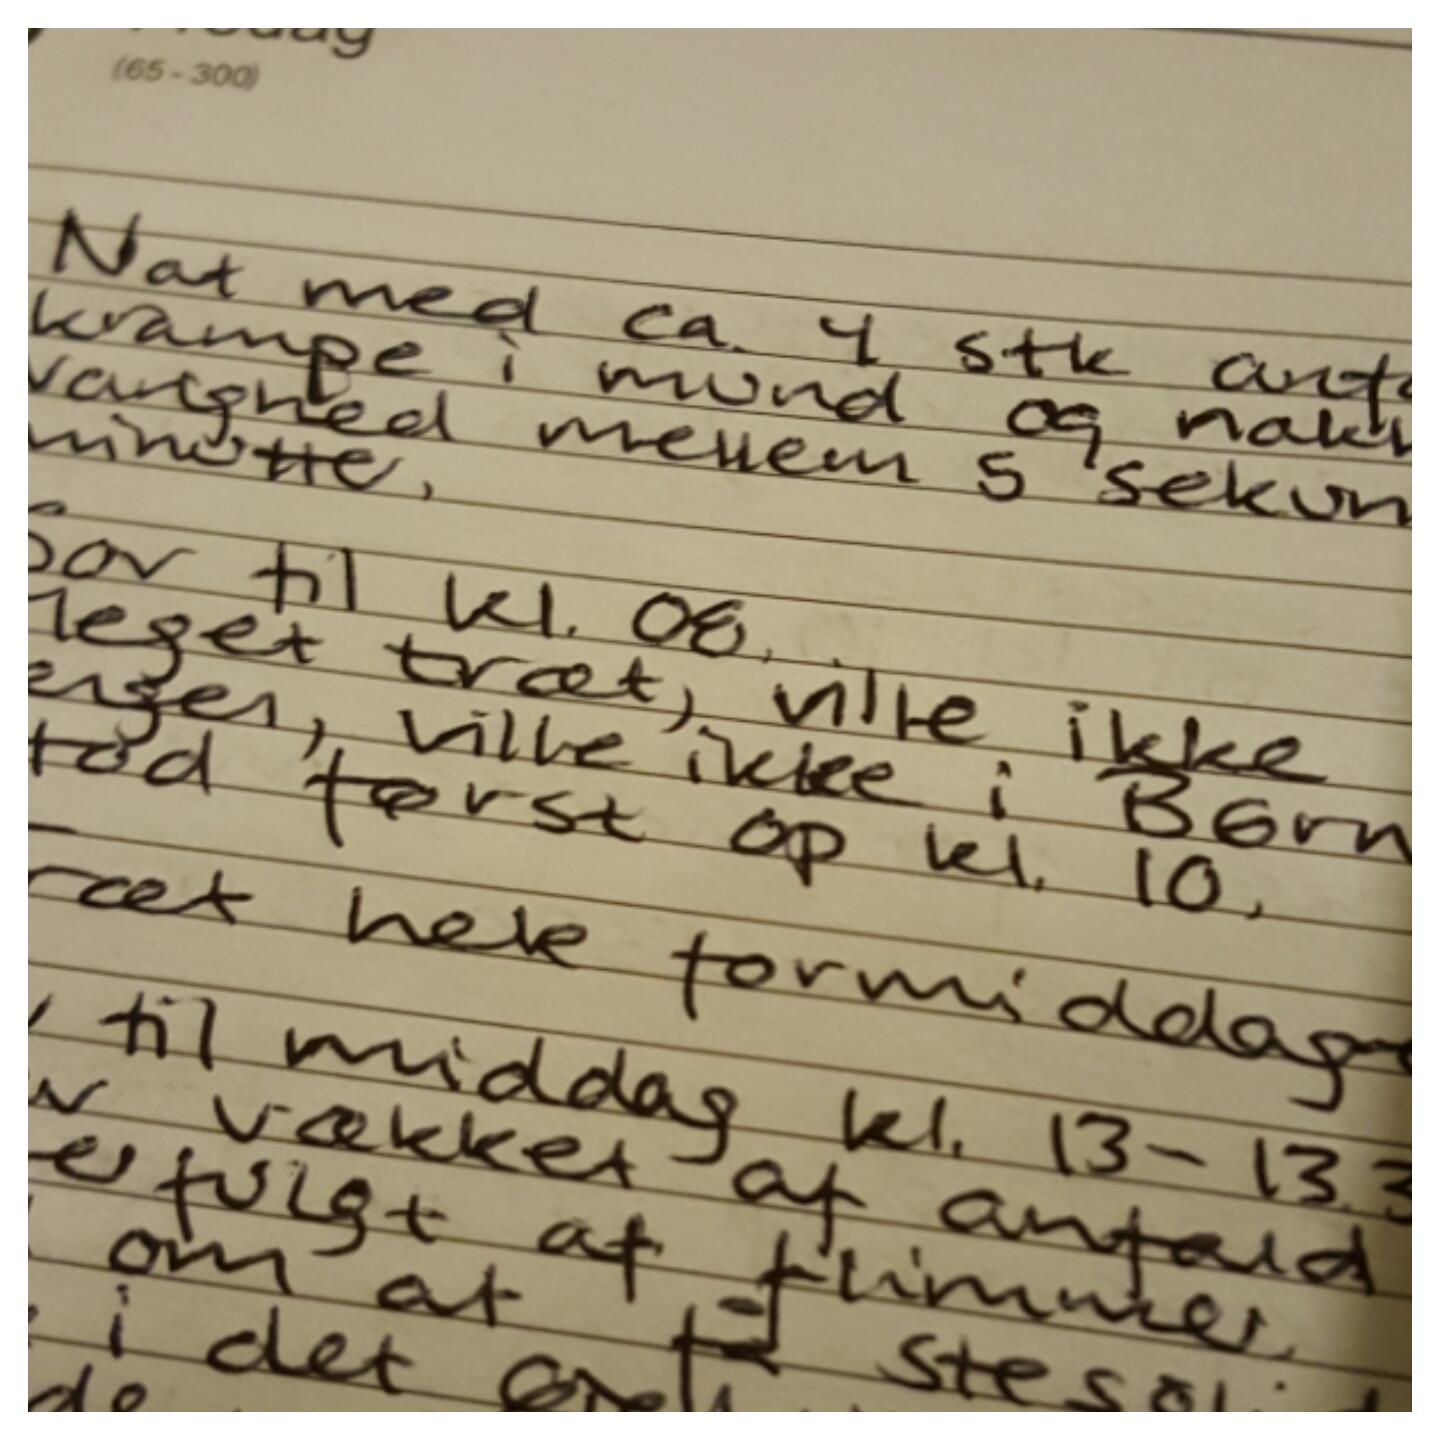 (65 - 300)
Nat med ca. 4 stk anfa
krampe i mund og nakk
varighed mellem 5 sekun
minutte.
Sov til kl. 08.
Meget træt, ville ikke
engen, ville ikke i Børn
tod først op kl. 10.
ræt hele formiddage
til middag kl. 13 - 13.3
vækket af anfald
efulgt af flimmer.
om at få stesolid
i det